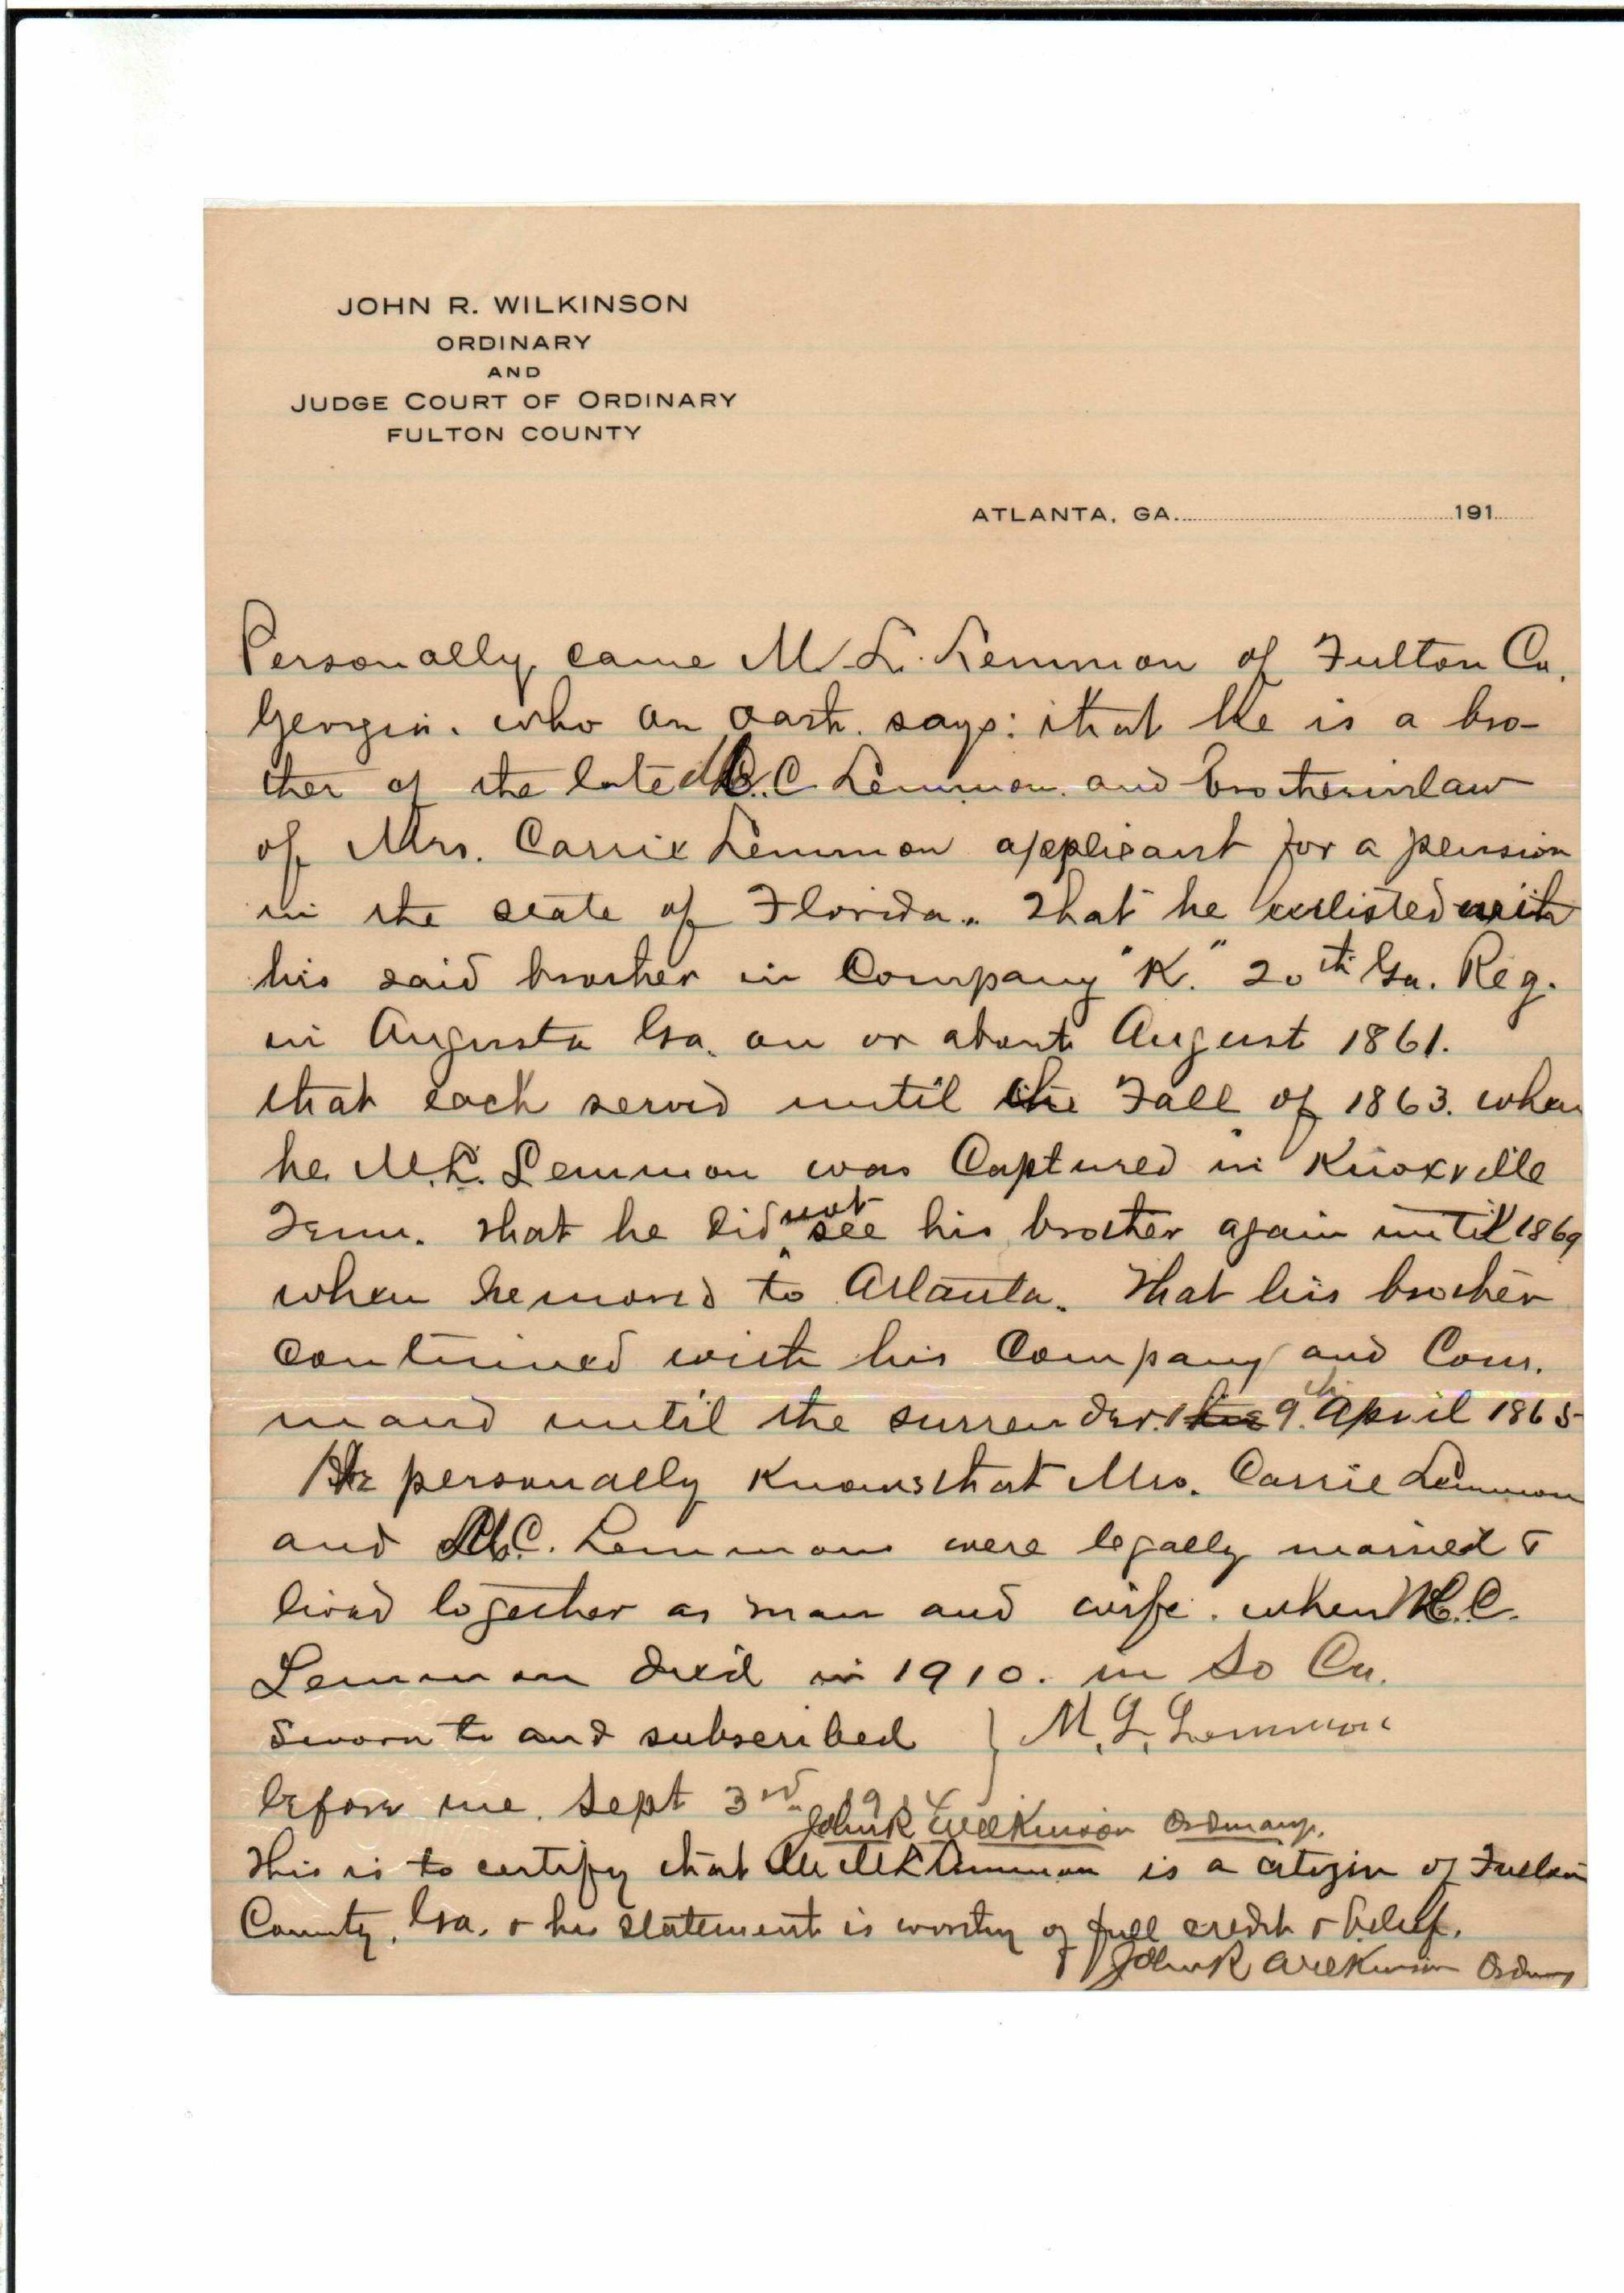 JOHN R. WILKINSON
ORDINARY
AND
JUDGE COURT OF ORDINARY
FULTON COUNTY
ATLANTA, GA. 191
Personally came M. L. Lemmon of Fulton Co.
Georgia. who on oath. says: that he is a bro-
ther of the late C Lemmon. and brotherinlaw
of Mrs. Carrie Lemmon applicant for a pension
in the state of Florida. That he enlisted with
his said brother in Company "K." 20th Ga. Reg.
in Augusta Ga. on or about August 1861.
that each served until the Fall of 1863. when
he M. L. Lemmon was Captured in Knoxville
Tenn. that he did not see his brother again until 1869
when he moved to Atlanta. That his brother
continued with his Company and Com.
mand until the surrender. 9th April 1865
He personally knows that Mrs. Carrie Lemmon
and C. Lemmon were legally married &
lived together as man and wife. when C.
Lemmon died in 1910. in So Ca.
Sworn to and subscribed } M. L. Lemmon
before me. Sept 3rd 1914
John R Wilkinson Ordinary.
This is to certify that M L Lemmon is a citizen of Fulton
County, Ga. & his statement is worthy of full credit & belief.
John R Wilkinson Ordinary